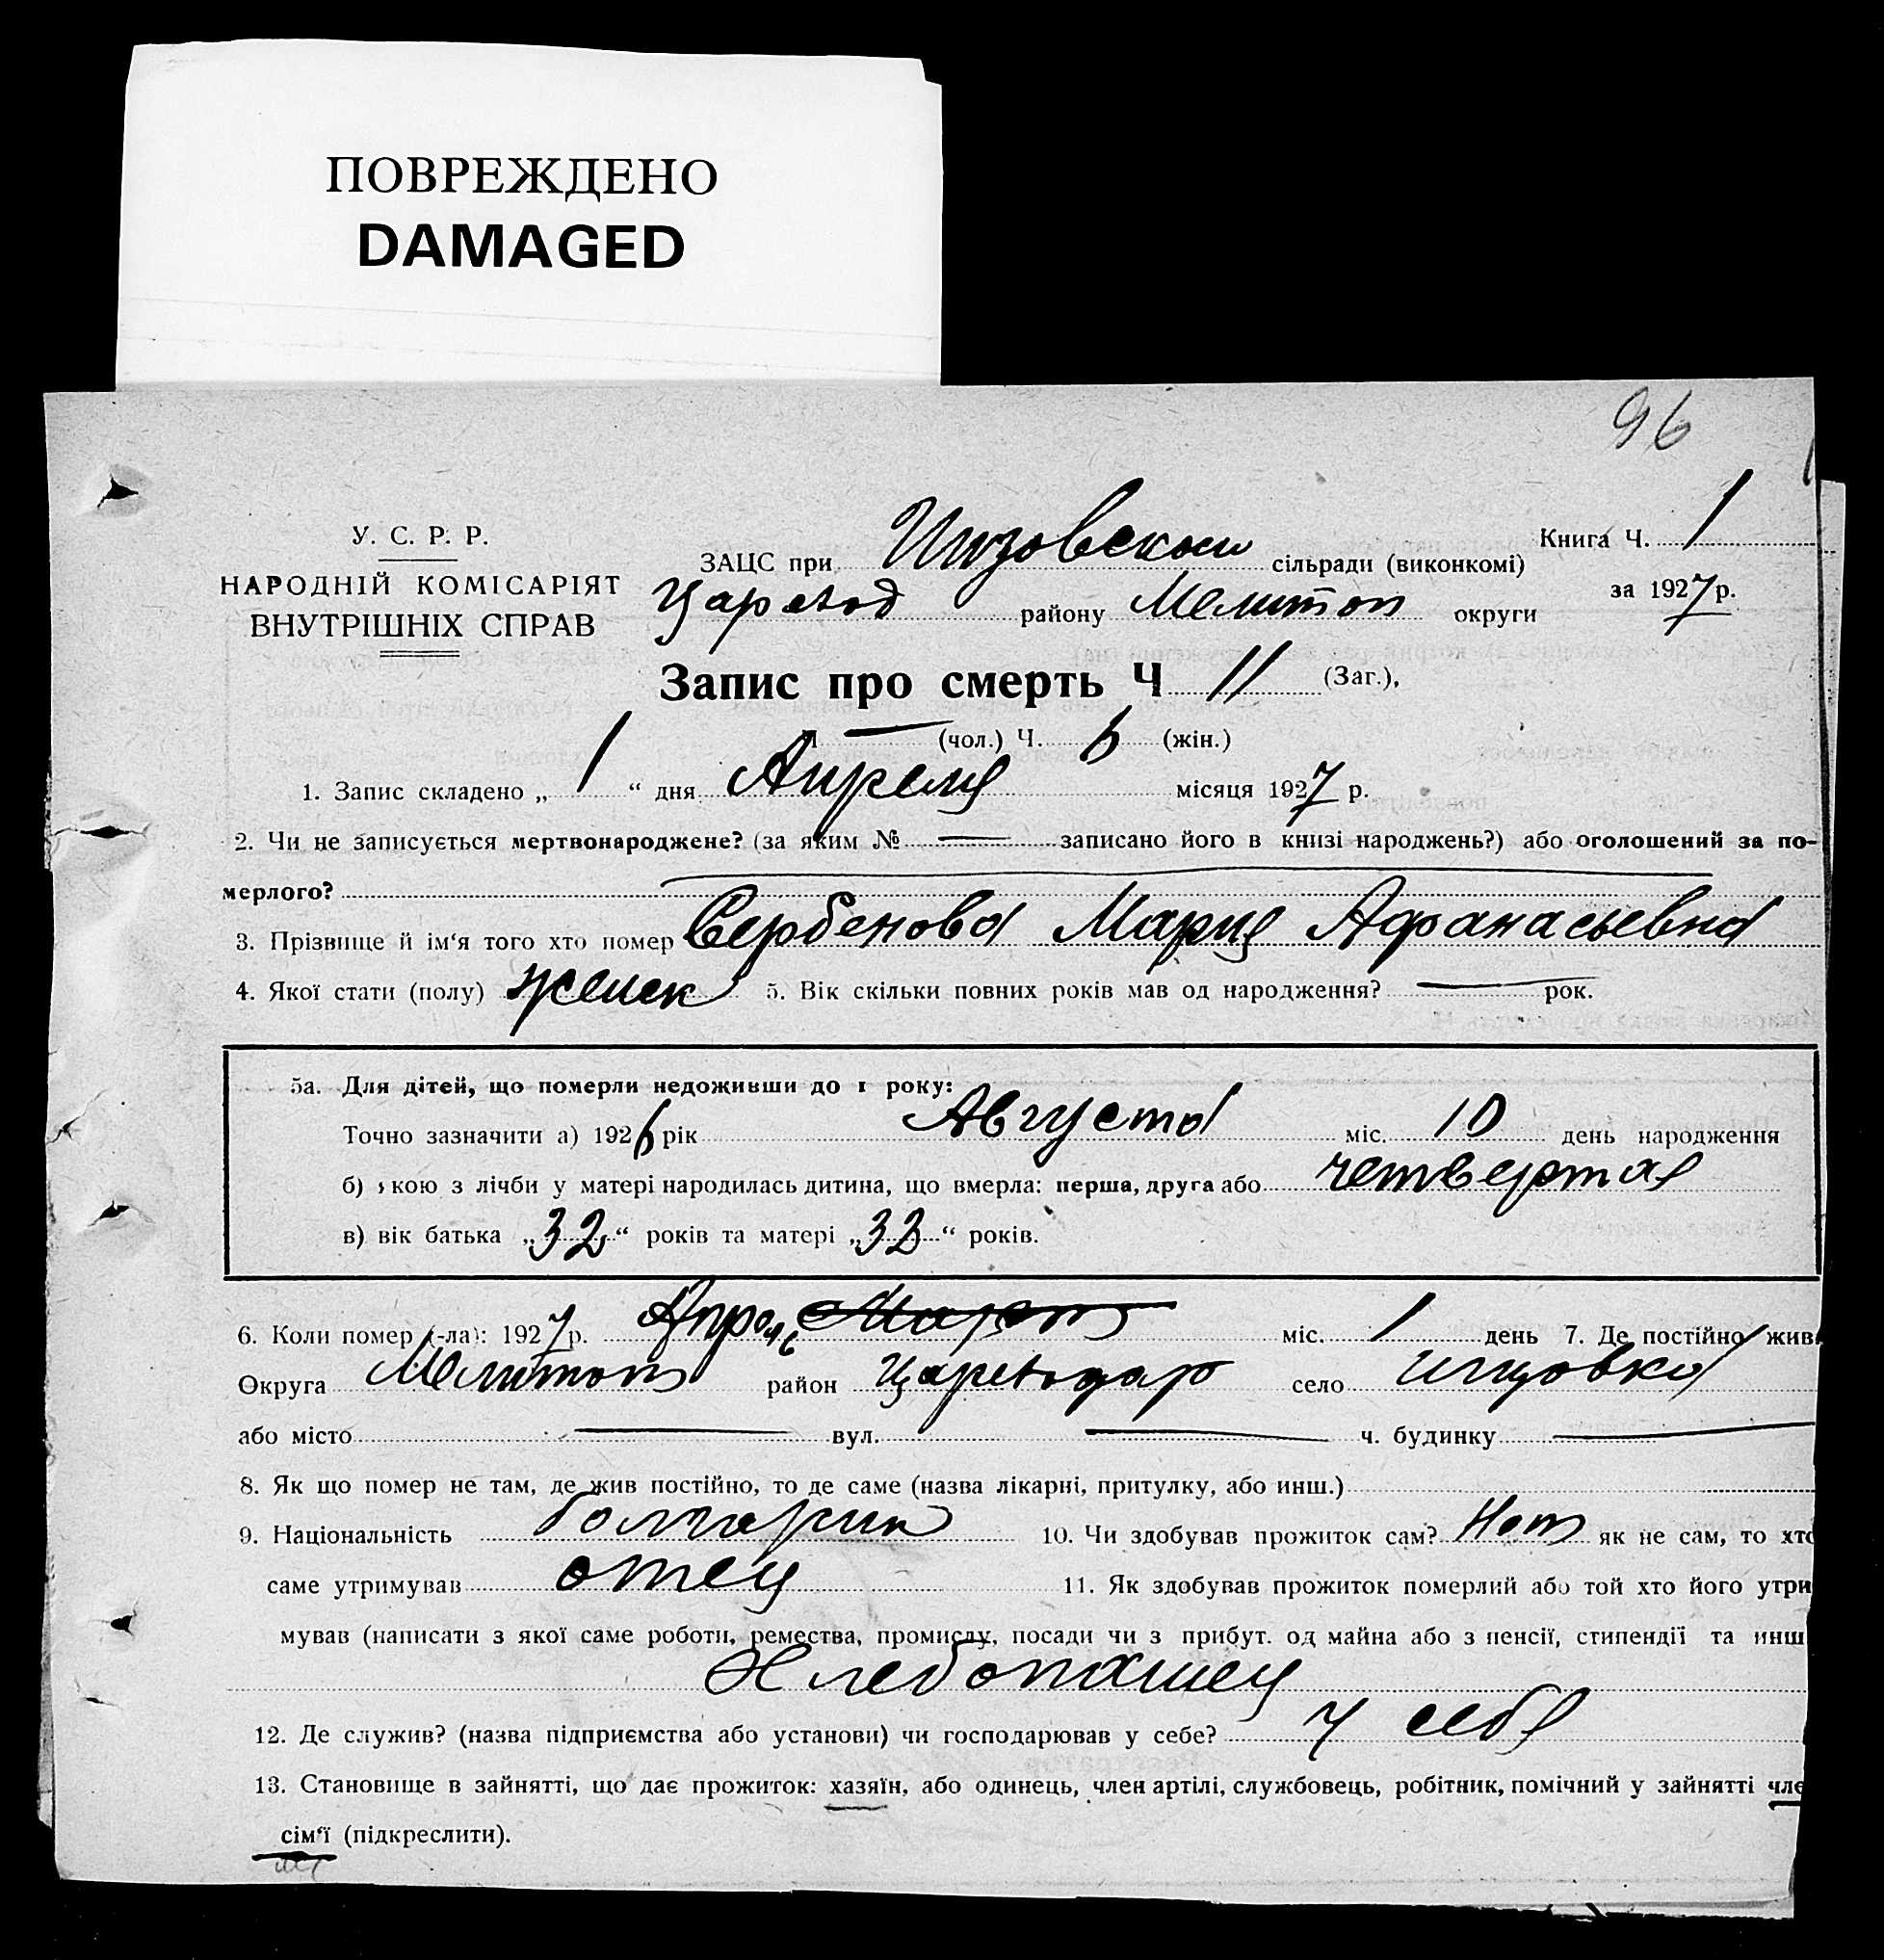 ПОВРЕЖДЕНО
DAMAGED
96
У. С. Р. Р.
НАРОДНІЙ КОМІСАРІЯТ
ВНУТРІШНІХ СПРАВ
ЗАЦС при сільради (виконкомі)
Книга Ч. 1
за 1927 р.
району Мелитоп округи
Запис про смерть Ч 11 (Заг.),
— (чол.) Ч. 6 (жін.)
1. Запис складено „ 1 “ дня Апреля місяця 1927 р.
2. Чи не записується мертвонароджене? (за яким № — записано його в книзі народжень?) або оголошений за по-
мерлого?
3. Прізвище й ім‘я того хто помер Сербенова Мария Афанасьевна
4. Якої стати (полу) женск 5. Вік скільки повних років мав од народження? — рок.
5а. Для дітей, що померли недоживши до 1 року:
Точно зазначити а) 1926 рік Августа міс. 10 день народження
б) якою з лічби у матері народилась дитина, що вмерла: перша, друга або четвертая
в) вік батька „32“ років та матері „33“ років.
6. Коли помер (-ла): 1927 р. Апрель Март міс. 1 день 7. Де постійно жив
Округа Мелитоп район село
або місто — вул. — ч. будинку —
8. Як що помер не там, де жив постійно, то де саме (назва лікарні, притулку, або инш.)
9. Національність болгарин 10. Чи здобував прожиток сам? Нет як не сам, то хто
саме утримував отец 11. Як здобував прожиток померлий або той хто його утри
мував (написати з якої саме роботи, ремества, промислу, посади чи з прибут. од майна або з пенсії, стипендії та инш
Хлебопашец
12. Де служив? (назва підприємства або установи) чи господарював у себе? У себя
13. Становище в зайнятті, що дає прожиток: хазяїн, або одинець, член артілі, службовець, робітник, помічний у зайнятті чле
сім‘ї (підкреслити).